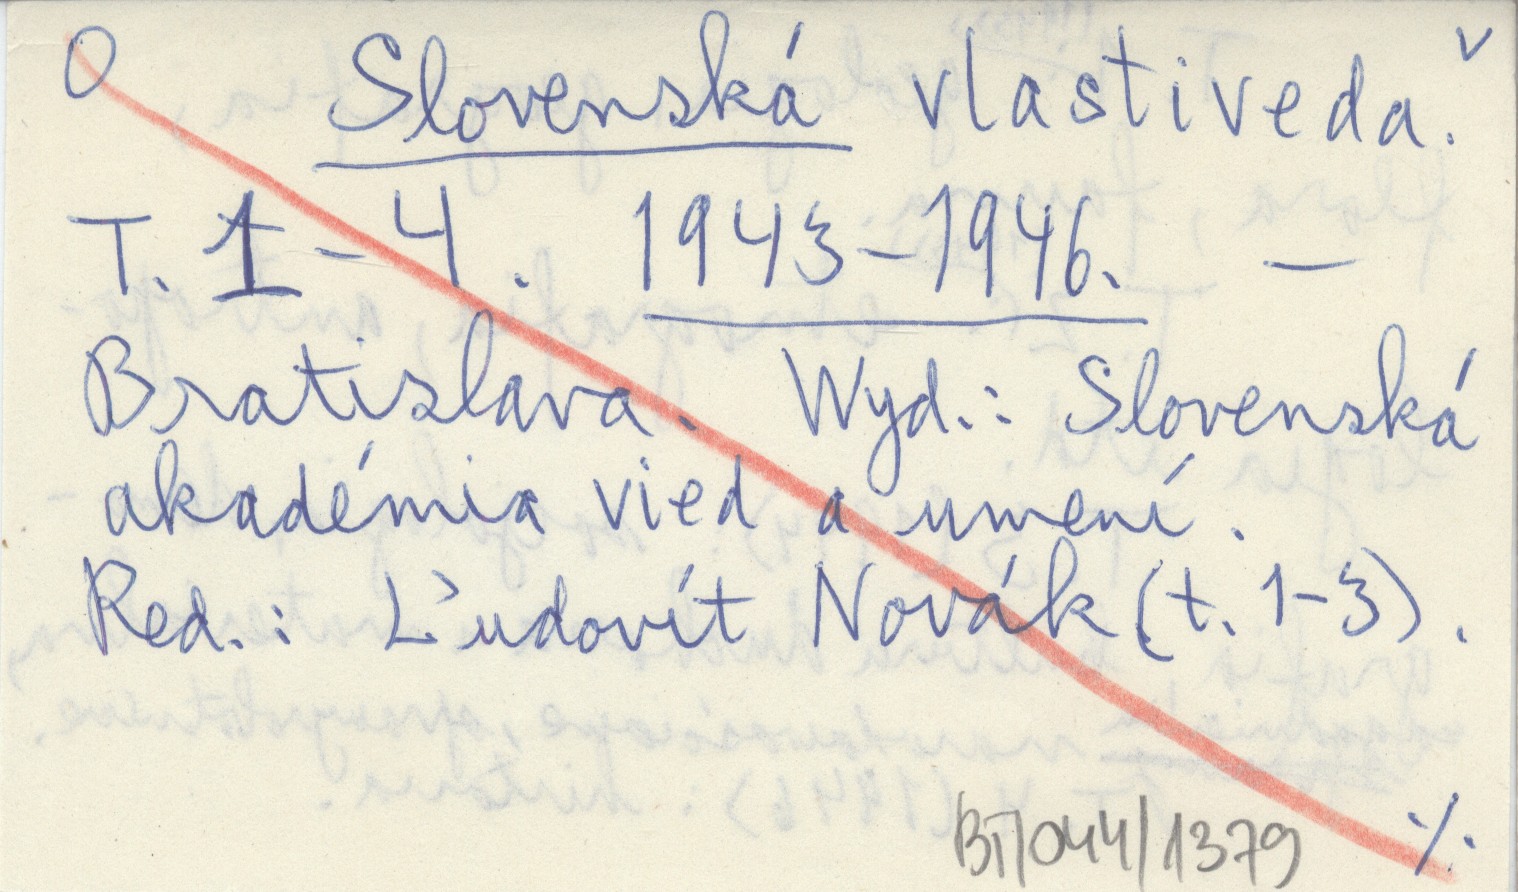 O Slovenská vlastiveda. v
T. 1 – 4. 1943–1946. —
Bratislava. Wyd.: Slovenská
akadémia vied a umení.
Red.: Ľudovít Novák (t. 1–3).
·/·
BJ/044/1379